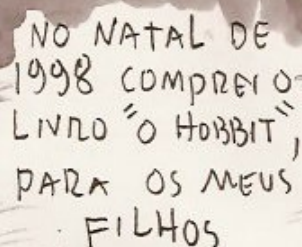 NO NATAL DE
1998 COMPREI O
LIVRO "O HOBBIT",
PARA OS MEUS
FILHOS